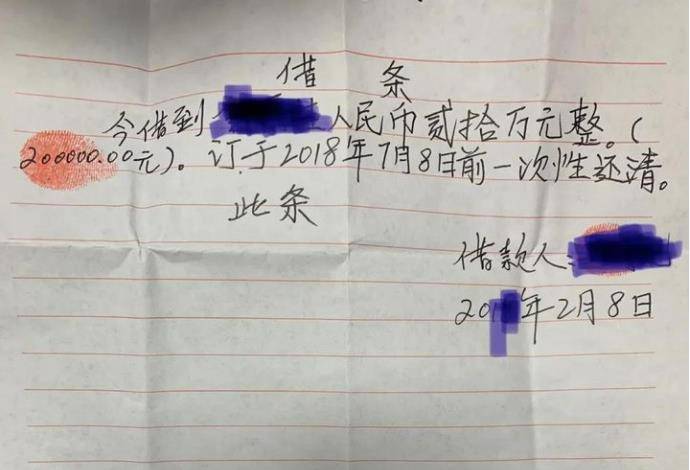 借条
今借到 人民币贰拾万元整。(
200000.00元)。订于2018年7月8日前一次性还清。
此条
借款人:
20 年2月8日